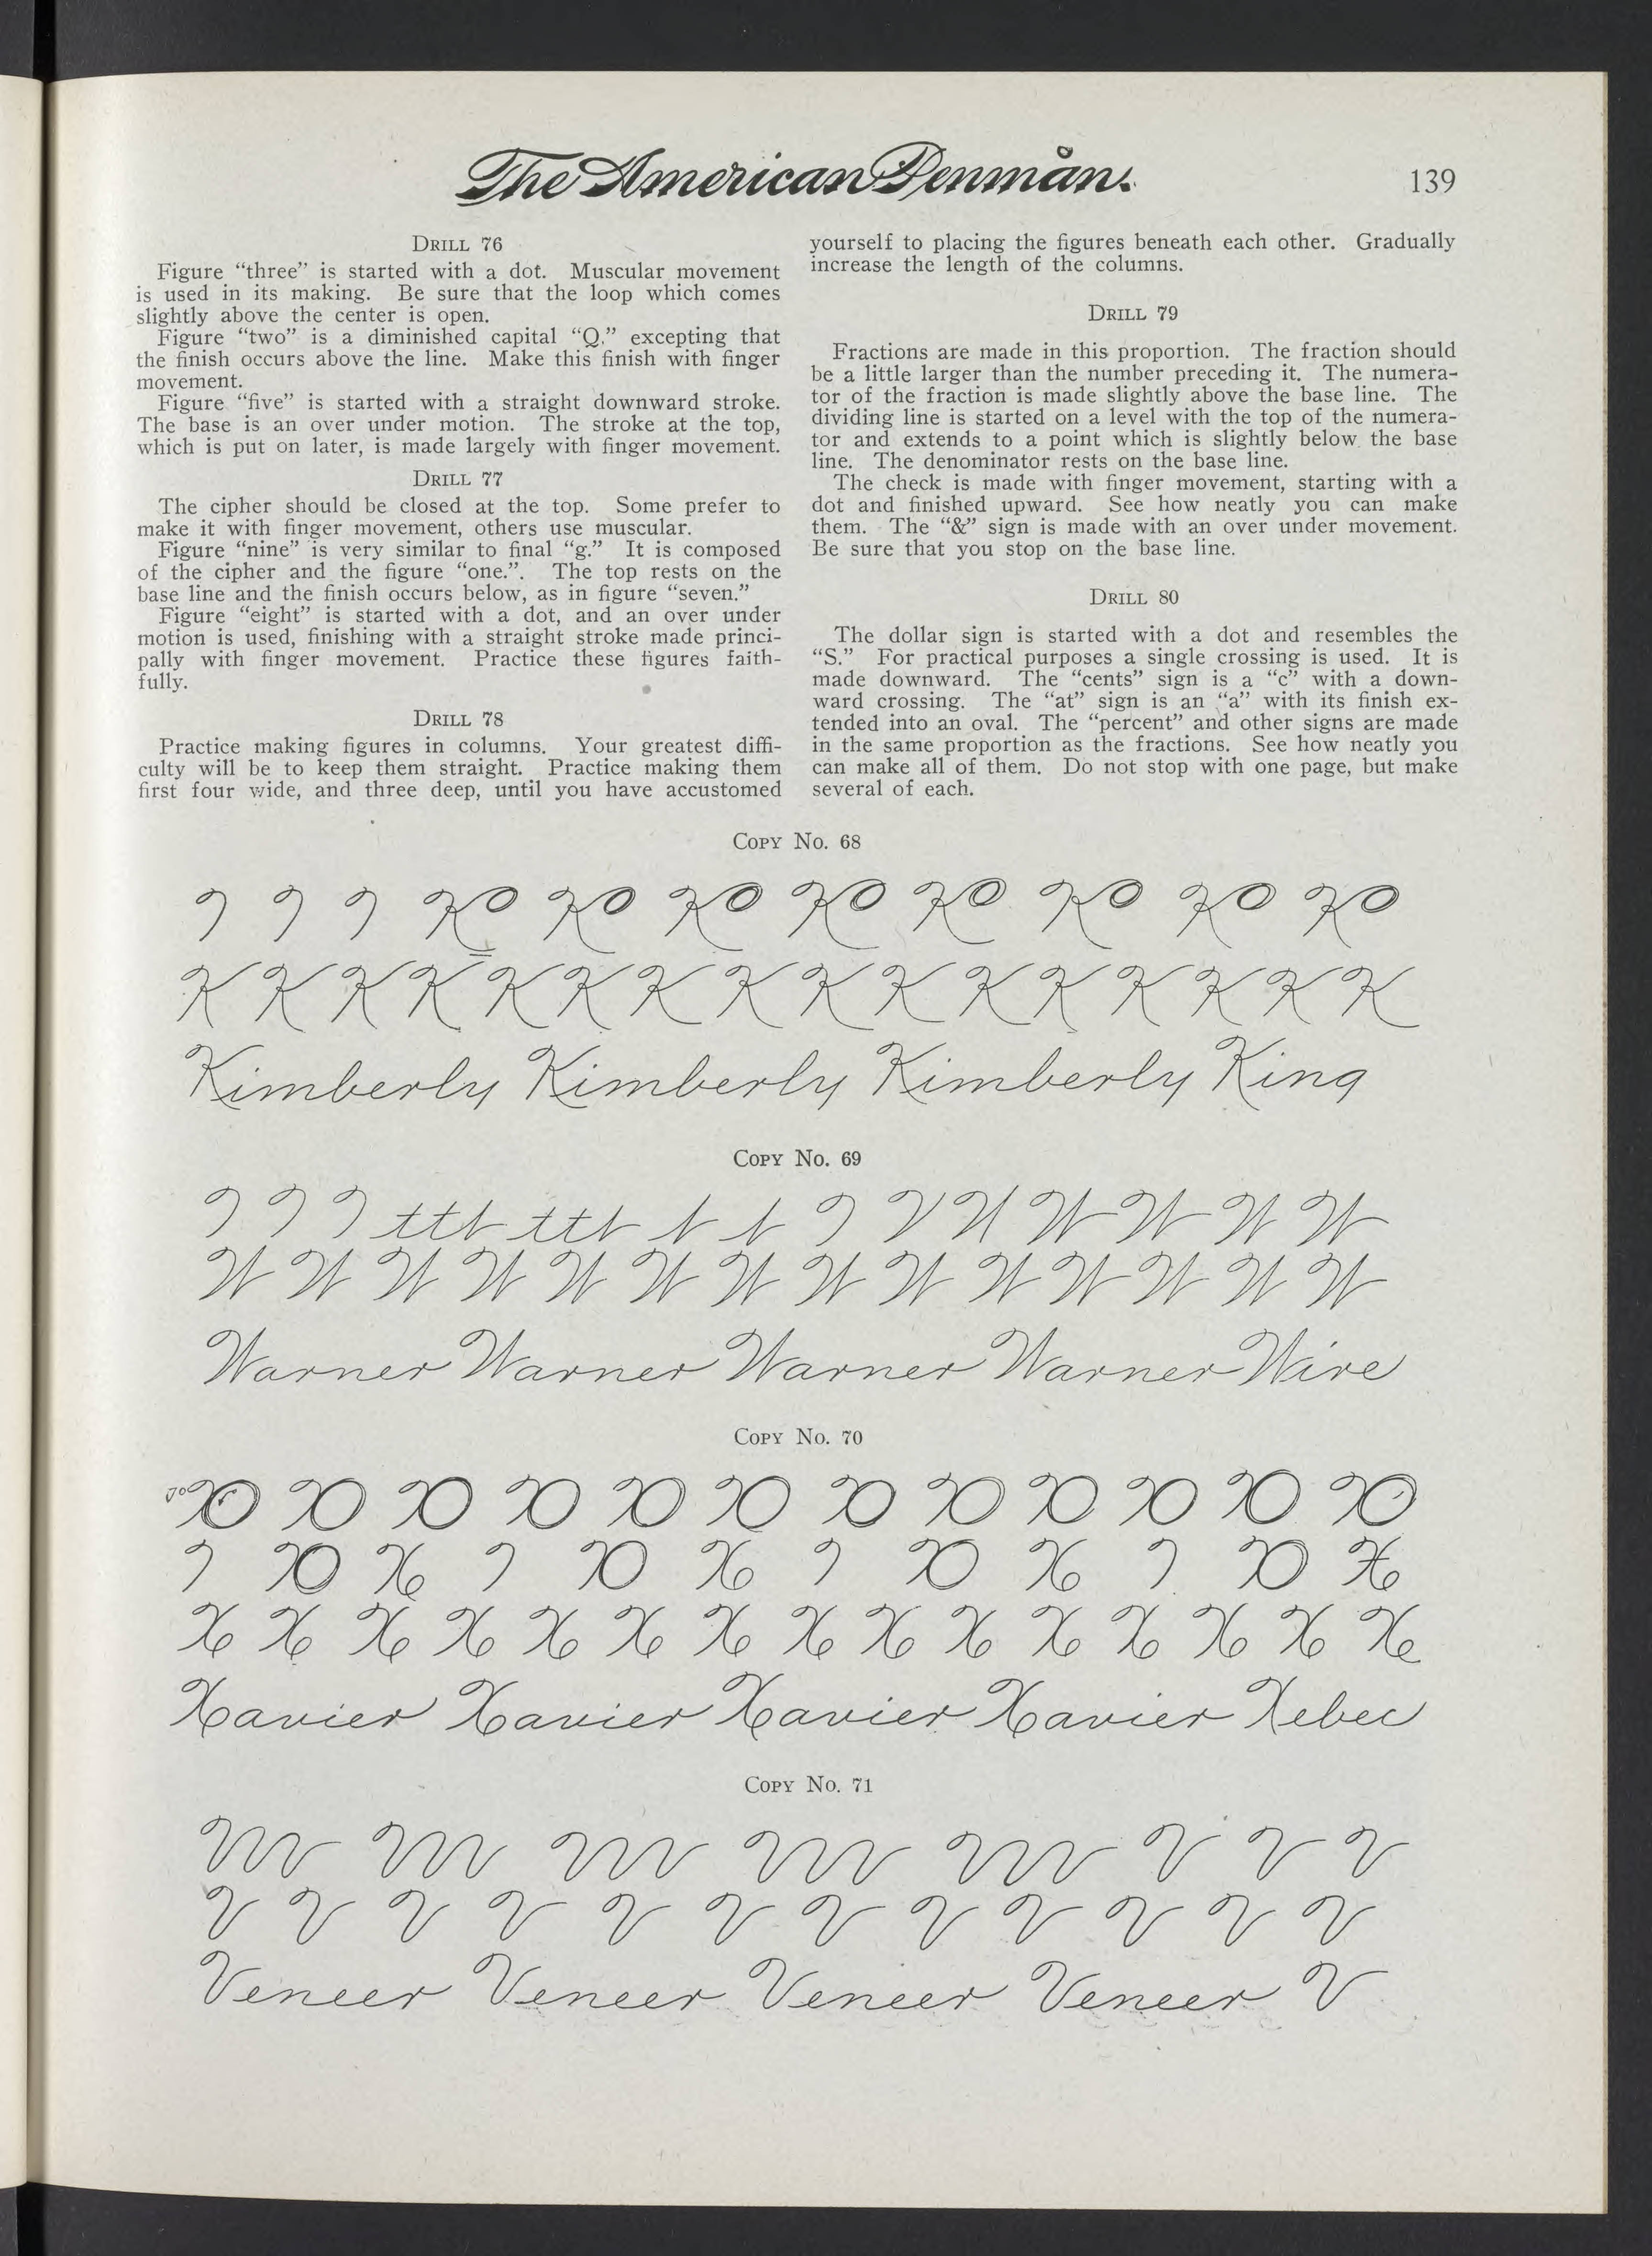 The American Penman.
139
DRILL 76
Figure “three” is started with a dot. Muscular movement
is used in its making. Be sure that the loop which comes
slightly above the center is open.
Figure “two” is a diminished capital “Q,” excepting that
the finish occurs above the line. Make this finish with finger
movement.
Figure “five” is started with a straight downward stroke.
The base is an over under motion. The stroke at the top,
which is put on later, is made largely with finger movement.
DRILL 77
The cipher should be closed at the top. Some prefer to
make it with finger movement, others use muscular.
Figure “nine” is very similar to final “g.” It is composed
of the cipher and the figure “one.”. The top rests on the
base line and the finish occurs below, as in figure “seven.”
Figure “eight” is started with a dot, and an over under
motion is used, finishing with a straight stroke made princi-
pally with finger movement. Practice these figures faith-
fully.
DRILL 78
Practice making figures in columns. Your greatest diffi-
culty will be to keep them straight. Practice making them
first four wide, and three deep, until you have accustomed
yourself to placing the figures beneath each other. Gradually
increase the length of the columns.
DRILL 79
Fractions are made in this proportion. The fraction should
be a little larger than the number preceding it. The numera-
tor of the fraction is made slightly above the base line. The
dividing line is started on a level with the top of the numera-
tor and extends to a point which is slightly below the base
line. The denominator rests on the base line.
The check is made with finger movement, starting with a
dot and finished upward. See how neatly you can make
them. The “&” sign is made with an over under movement.
Be sure that you stop on the base line.
DRILL 80
The dollar sign is started with a dot and resembles the
“S.” For practical purposes a single crossing is used. It is
made downward. The “cents” sign is a “c” with a down-
ward crossing. The “at” sign is an “a” with its finish ex-
tended into an oval. The “percent” and other signs are made
in the same proportion as the fractions. See how neatly you
can make all of them. Do not stop with one page, but make
several of each.
COPY No. 68
K K K K K K K K K K K K K K K K
Kimberly Kimberly Kimberly King
COPY No. 69
W W W W W W W W W W W W W W
Warner Warner Warner Warner Wire
COPY No. 70
X X X X X X X X X X X X X X X
Xavier Xavier Xavier Xavier Xebec
COPY No. 71
V V V V V V V V V V V V
Veneer Veneer Veneer Veneer V